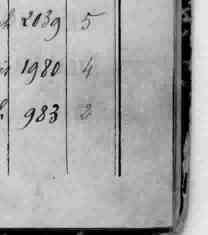 2039 5
1980 4
983 2